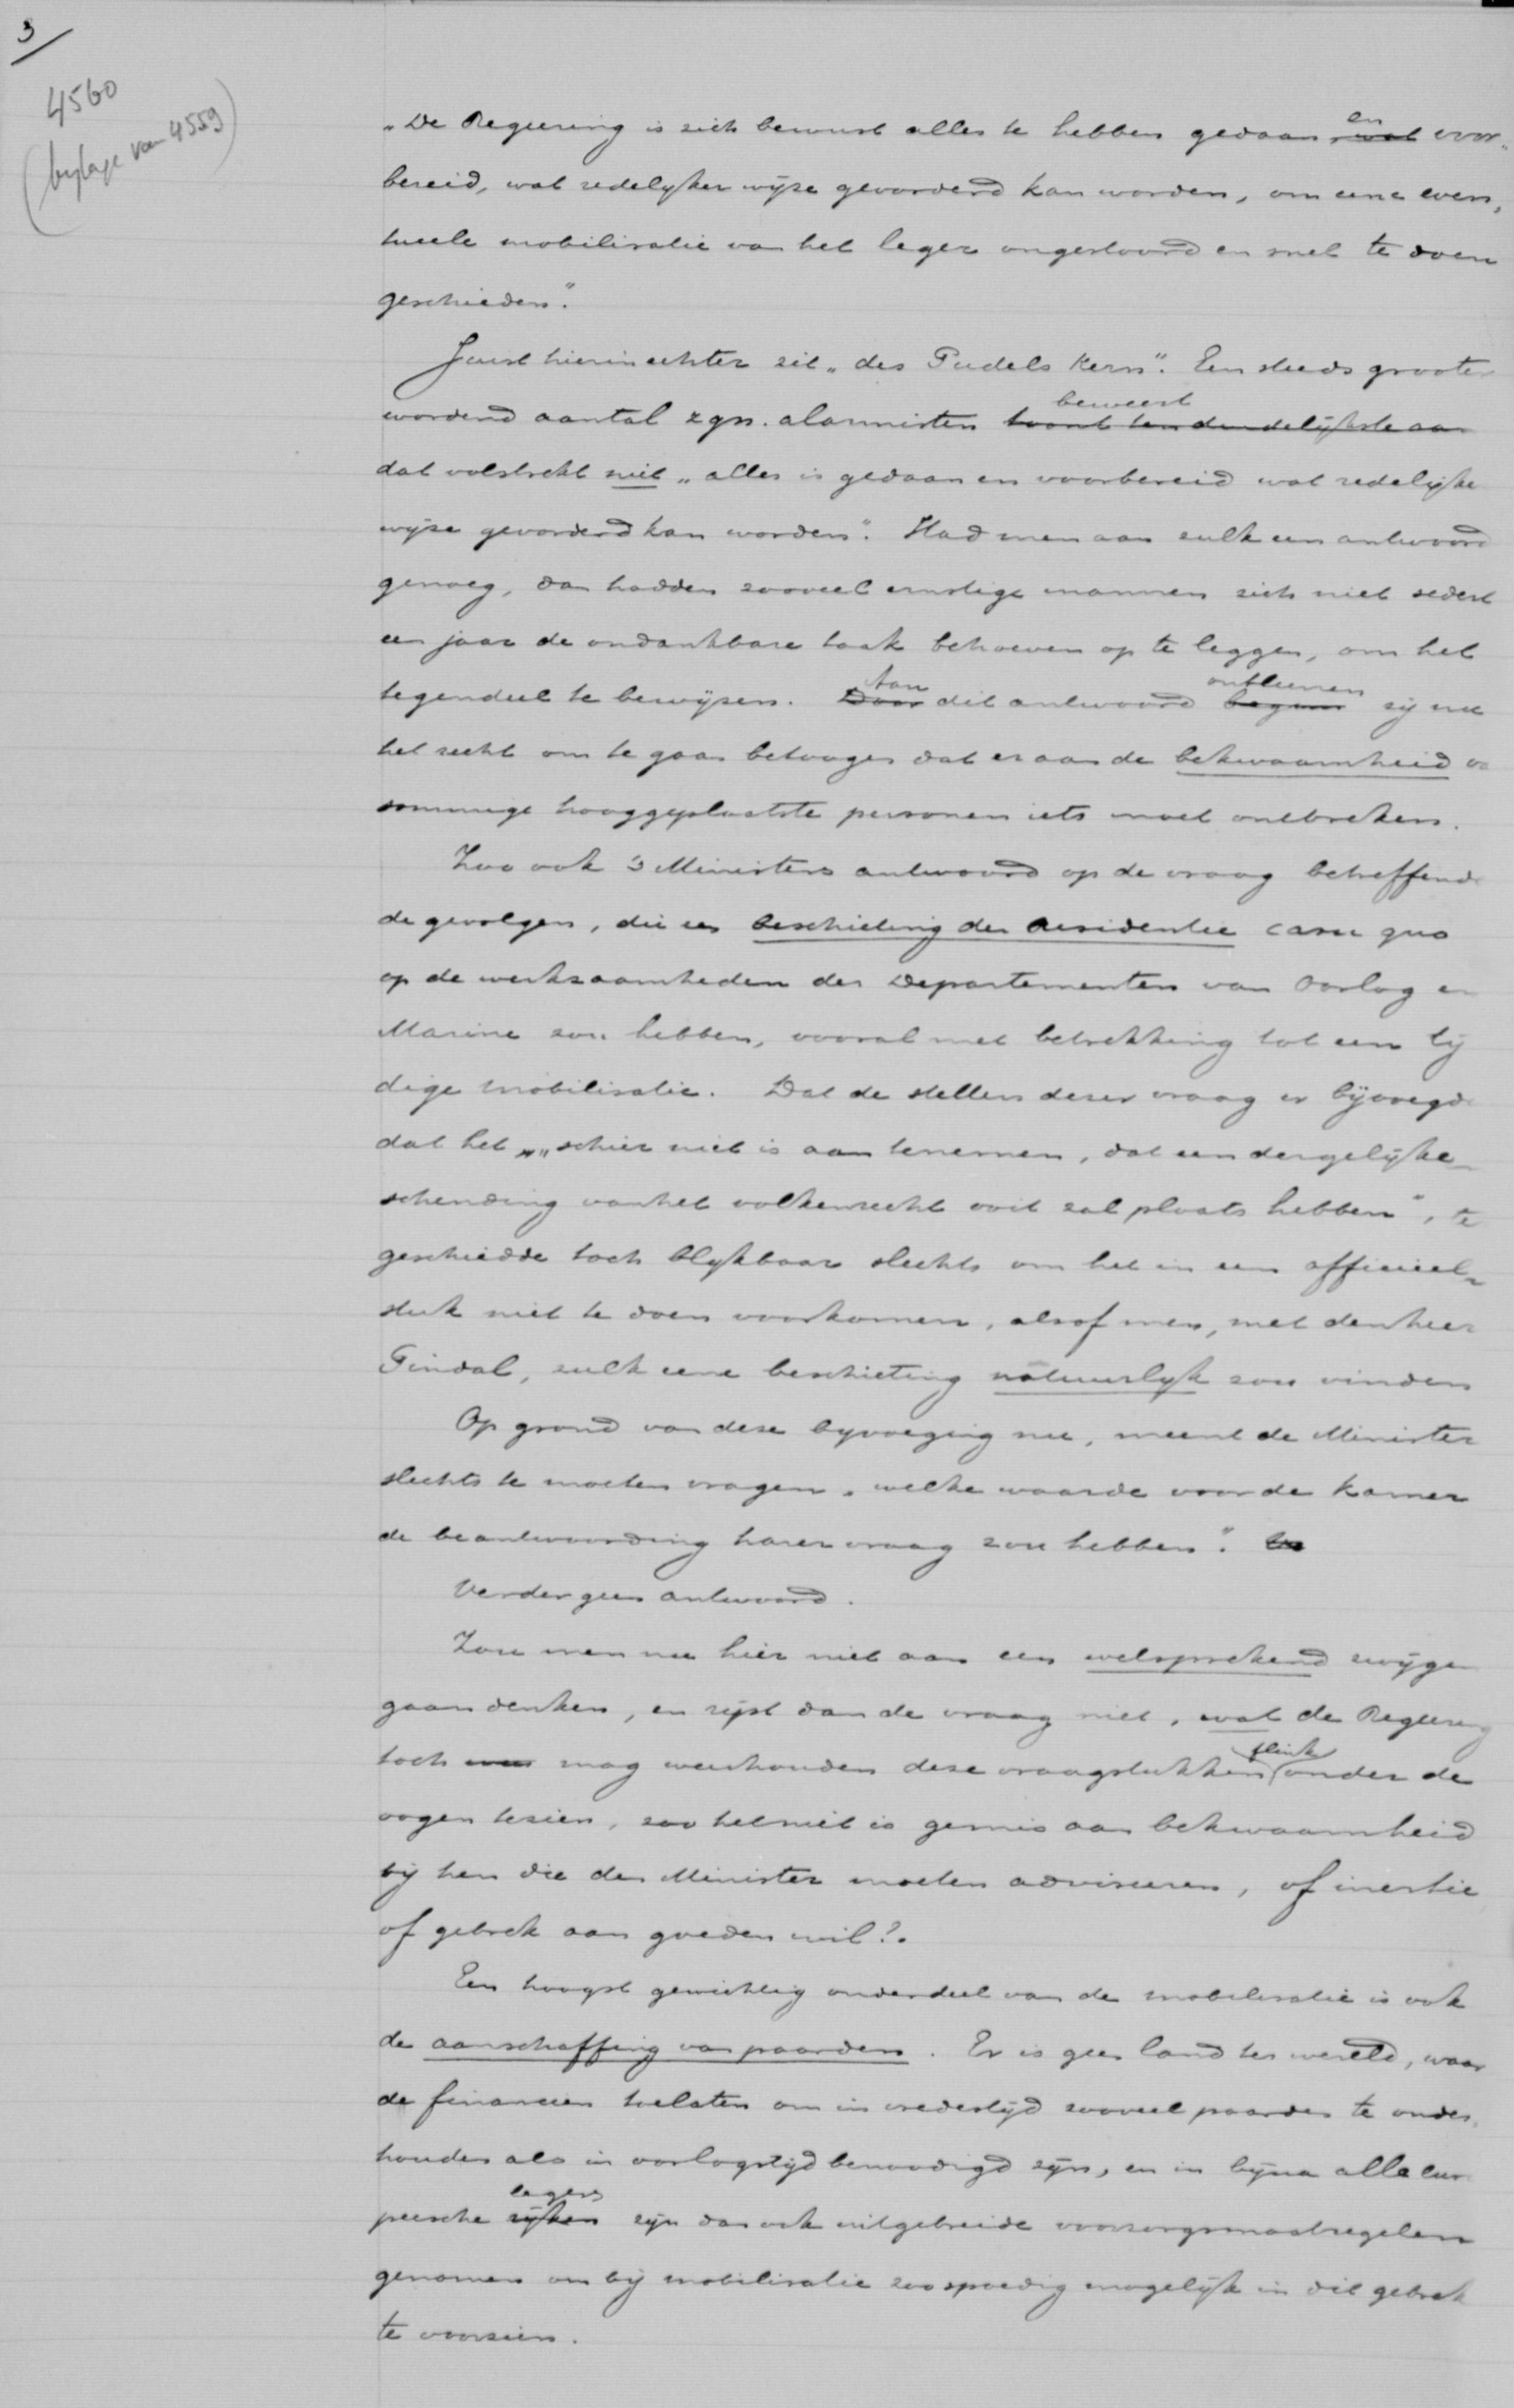 3
4560
(bylage van 4559)
„De Regeering is zich bewust alles te hebben gedaan, ~~wat~~ en voor„
bereid, wat redelyker wyze gevorderd kan worden, om eene even„
tueele mobilisatie van het leger ongestoord en snel te doen
geschieden".
Juist hierin echter zit „des Pudels Kern". Een steeds grooter
wordend aantal zgn. alarmisten ~~toont ten duidelijkste aan~~ beweert
dat volstrekt niet „alles is gedaan en voorbereid wat redelyke
wyze gevorderd kan worden". Had men aan zulk een antwoord
genoeg, dan hadden zooveel ernstige mannen zich niet sedert
een jaar de ondankbare taak behoeven op te leggen, om het
tegendeel te bewyzen. ~~Door~~ Aan dit antwoord ontleenen zij nu
het recht om te gaan betoogen dat er aan de bekwaamheid va
sommige hooggeplaatste personen iets moet ontbreken.
Zoo ook 's Ministers antwoord op de vraag betreffende
de gevolgen, die een beschieting der Residentie casu quo
op de werkzaamheden der Departementen van Oorlog en
Marine zou hebben, vooral met betrekking tot een tij
dige mobilisatie. Dat de stellers dezer vraag er bijvoegde
dat het „„schier niet is aan tenemen, dat een dergelijke
schending van het volkenrecht ooit zal plaats hebben", te
geschiedde toch blykbaar slechts om het in een officieel
stuk niet te doen voorkomen, alsof men, met den heer
Tindal, zulk eene beschieting natuurlyk zou vinden
Op grond van deze byvoeging nu, meent de Minister
slechts te moeten vragen „welke waarde voor de Kamer
de beantwoording harer vraag zou hebben".
Verder geen antwoord.
Zou men nu hier niet aan een welsprekend zwijgen
gaan denken, en rijst dan de vraag niet, wat de Regeering
toch mag weerhouden deze vraagstukken flink onder de
oogen tezien, zoo het niet is gemis aan bekwaamheid
bij hen die den Minister moeten adviseeren, of inertie
of gebrek aan goeden wil?.
Een hoogst gewichtig onderdeel van de mobilisatie is ook
de aanschaffing van paarden. Er is geen land ter wereld, waar
de financien toelaten om in vredestijd zooveel paarden te onder„
houden als in oorlogstijd benoodigd zijn, en in bijna alle Euro
peesche ~~rijken~~ legers zijn dan ook uitgebreide voorzorgsmaatregelen
genomen om bij mobilisatie zoo spoedig mogelijk in dit gebrek
te voorzien.